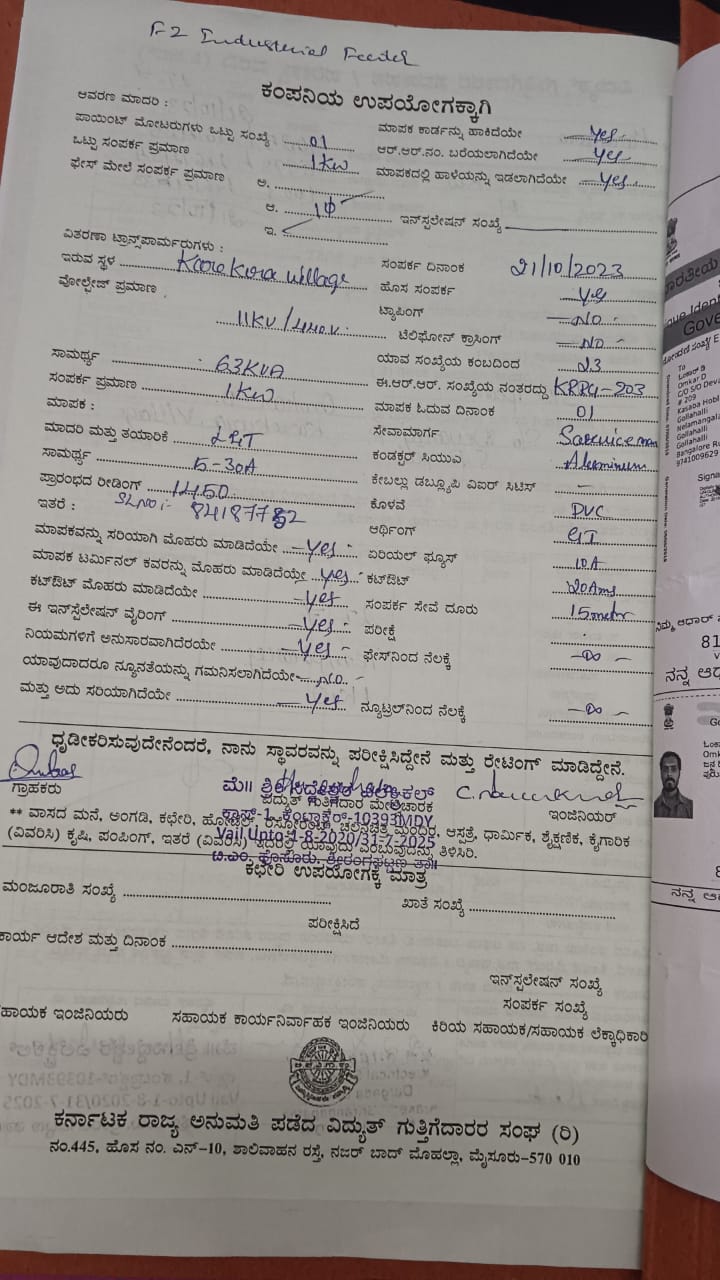 F2 Industerial Feeder
ಕಂಪನಿಯ ಉಪಯೋಗಕ್ಕಾಗಿ
ಆವರಣ ಮಾದರಿ :
ಪಾಯಿಂಟ್ ಮೋಟರುಗಳು ಒಟ್ಟು ಸಂಖ್ಯೆ 01 ಮಾಪಕ ಕಾರ್ಡನ್ನು ಹಾಕಿದೆಯೇ Yes
ಒಟ್ಟು ಸಂಪರ್ಕ ಪ್ರಮಾಣ 1KW ಆರ್.ಆರ್.ನಂ. ಬರೆಯಲಾಗಿದೆಯೇ Yes
ಫೇಸ್ ಮೇಲೆ ಸಂಪರ್ಕ ಪ್ರಮಾಣ ಅ. ಮಾಪಕದಲ್ಲಿ ಹಾಳೆಯನ್ನು ಇಡಲಾಗಿದೆಯೇ Yes
ಆ. 1Φ ಇನ್‌ಸ್ಟಲೇಷನ್ ಸಂಖ್ಯೆ
ಇ.
ವಿತರಣಾ ಟ್ರಾನ್ಸ್‌ಪಾರ್ಮರುಗಳು :
ಇರುವ ಸ್ಥಳ village ಸಂಪರ್ಕ ದಿನಾಂಕ 21/10/2023
ವೋಲ್ಟೇಜ್ ಪ್ರಮಾಣ ಹೊಸ ಸಂಪರ್ಕ Yes
ಟ್ಯಾಪಿಂಗ್ — NO —
11KV/440V ಟೆಲಿಫೋನ್ ಕ್ರಾಸಿಂಗ್ — NO —
ಸಾಮರ್ಥ್ಯ 63KVA ಯಾವ ಸಂಖ್ಯೆಯ ಕಂಬದಿಂದ 23
ಸಂಪರ್ಕ ಪ್ರಮಾಣ 1KW ಈ.ಆರ್.ಆರ್. ಸಂಖ್ಯೆಯ ನಂತರದ್ದು
ಮಾಪಕ : ಮಾಪಕ ಓದುವ ದಿನಾಂಕ 01
ಮಾದರಿ ಮತ್ತು ತಯಾರಿಕೆ L&T ಸೇವಾಮಾರ್ಗ
ಸಾಮರ್ಥ್ಯ 5-30A ಕಂಡಕ್ಟರ್ ಸಿಯುಎ Aluminum
ಪ್ರಾರಂಭದ ರೀಡಿಂಗ್ ಕೇಬಲ್ಲು ಡಬ್ಲ್ಯೂಪಿ ವಿಐರ್ ಸಿಟಿಸ್ —
ಇತರೆ : SL NO:- ಕೊಳವೆ PVC
ಆರ್ಥಿಂಗ್ GI
ಮಾಪಕವನ್ನು ಸರಿಯಾಗಿ ಮೊಹರು ಮಾಡಿದೆಯೇ — Yes ಏರಿಯಲ್ ಫ್ಯೂಸ್ 10A
ಮಾಪಕ ಟರ್ಮಿನಲ್ ಕವರನ್ನು ಮೊಹರು ಮಾಡಿದೆಯೇ Yes ಕಟ್‌ಔಟ್ 20Ams
ಕಟ್‌ಔಟ್ ಮೊಹರು ಮಾಡಿದೆಯೇ — Yes ಸಂಪರ್ಕ ಸೇವೆ ದೂರು 15metr
ಈ ಇನ್‌ಸ್ಟೆಲೇಷನ್ ವೈರಿಂಗ್ — Yes ಪರೀಕ್ಷೆ
ನಿಯಮಗಳಿಗೆ ಅನುಸಾರವಾಗಿದೆರಯೇ — Yes — ಫೇಸ್‌ನಿಂದ ನೆಲಕ್ಕೆ — ∞ —
ಯಾವುದಾದರೂ ನ್ಯೂನತೆಯನ್ನು ಗಮನಿಸಲಾಗಿದೆಯೇ NO
ಮತ್ತು ಅದು ಸರಿಯಾಗಿದೆಯೇ — Yes ನ್ಯೂಟ್ರಲ್‌ನಿಂದ ನೆಲಕ್ಕೆ — ∞ —
ಧೃಡೀಕರಿಸುವುದೇನೆಂದರೆ, ನಾನು ಸ್ಥಾವರವನ್ನು ಪರೀಕ್ಷಿಸಿದ್ದೇನೆ ಮತ್ತು ರೇಟಿಂಗ್ ಮಾಡಿದ್ದೇನೆ.
ಮೆ॥ ಶ್ರೀ ಸಿದ್ದೇಶ್ವರ ಎಲೆಕ್ಟ್ರಿಕಲ್
ಗ್ರಾಹಕರು ವಿದ್ಯುತ್ ಗುತ್ತಿಗೆದಾರ ಮೇಲ್ವಿಚಾರಕ ಇಂಜಿನಿಯರ್
ಕ್ಲಾಸ್-1, ಕಂಟ್ರಾಕ್ಟರ್-10393MDY
** ವಾಸದ ಮನೆ, ಅಂಗಡಿ, ಕಛೇರಿ, ಹೋಟೆಲ್, ರೆಸ್ಟೋರೆಂಟ್, ಚಲನಚಿತ್ರ ಮಂದಿರ, ಆಸ್ಪತ್ರೆ, ಧಾರ್ಮಿಕ, ಶೈಕ್ಷಣಿಕ, ಕೈಗಾರಿಕ
Vail Upto-1-8-2020/31-7-2025
(ವಿವರಿಸಿ) ಕೃಷಿ, ಪಂಪಿಂಗ್, ಇತರೆ (ವಿವರಿಸಿ) ಇದರಲ್ಲಿ ಯಾವುದು ಎಂಬುವುದನ್ನು ತಿಳಿಸಿರಿ.
ಟಿ.ಎಂ. ಹೊಸೂರು, ಶ್ರೀರಂಗಪಟ್ಟಣ ತಾ॥
ಕಛೇರಿ ಉಪಯೋಗಕ್ಕೆ ಮಾತ್ರ
ಮಂಜೂರಾತಿ ಸಂಖ್ಯೆ ಖಾತೆ ಸಂಖ್ಯೆ
ಪರೀಕ್ಷಿಸಿದೆ
ಕಾರ್ಯ ಆದೇಶ ಮತ್ತು ದಿನಾಂಕ
ಇನ್‌ಸ್ಟಲೇಷನ್ ಸಂಖ್ಯೆ
ಸಂಪರ್ಕ ಸಂಖ್ಯೆ
ಹಾಯಕ ಇಂಜಿನಿಯರು ಸಹಾಯಕ ಕಾರ್ಯನಿರ್ವಾಹಕ ಇಂಜಿನಿಯರು ಕಿರಿಯ ಸಹಾಯಕ/ಸಹಾಯಕ ಲೆಕ್ಕಾಧಿಕಾರಿ
ಕರ್ನಾಟಕ ರಾಜ್ಯ ಅನುಮತಿ ಪಡೆದ ವಿದ್ಯುತ್ ಗುತ್ತಿಗೆದಾರರ ಸಂಘ (ರಿ)
ನಂ.445, ಹೊಸ ನಂ. ಎನ್-10, ಶಾಲಿವಾಹನ ರಸ್ತೆ, ನಜರ್ ಬಾದ್ ಮೊಹಲ್ಲಾ, ಮೈಸೂರು-570 010
To
Omkar D
# 209
Kasaba Hobl
Gollahalli
Nelamangala
Gollahalli
9741009629
81